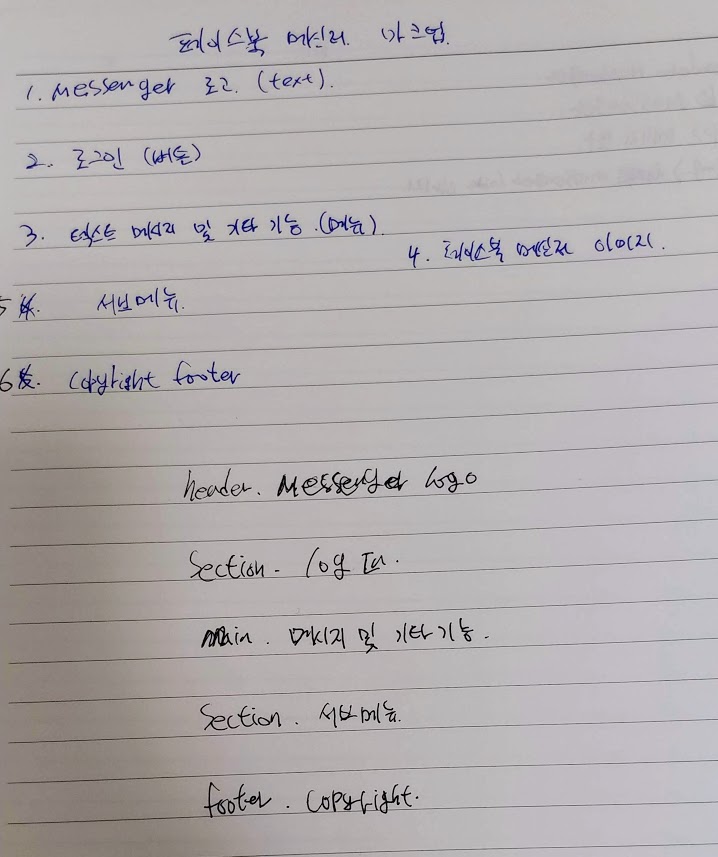 페이스북 메신저 마크업.
1. Messenger 로고. (text).
2. 로그인 (버튼)
3. 텍스트 메시지 및 기타 기능. (메뉴)
4. 페이스북 메신저 이미지.
5 서브메뉴.
6 Copyright footer
header. Messenger logo
Section. log In.
main. 메시지 및 기타기능.
Section. 서브메뉴.
footer. Copyright.